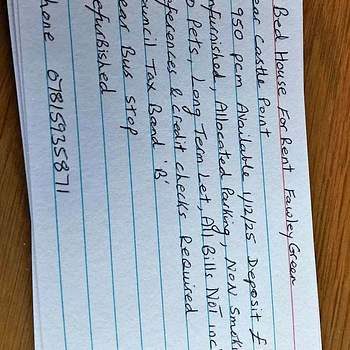 Bed House For Rent Fawley Green
ear Castle Point
950 pcm Available 1/12/25 Deposit £
furnished, Allocated Parking, Non Smoki
o Pets, Long Term Let, All Bills Not inc
eferences & Credit checks Required
ouncil Tax Band 'B'
ear Bus Stop
efurbished
hone 07815935871